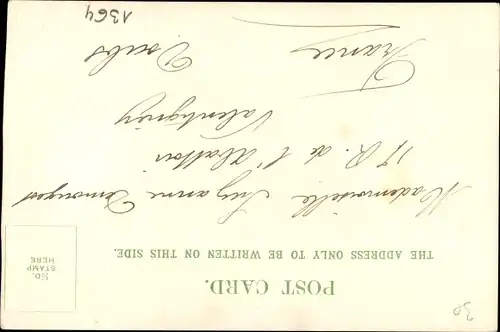 POST CARD.
THE ADDRESS ONLY TO BE WRITTEN ON THIS SIDE.
½D.
STAMP
HERE
Mademoiselle Suzanne
17 R. de l'Abattoir
Valentigney
Doubs
France
1364
30